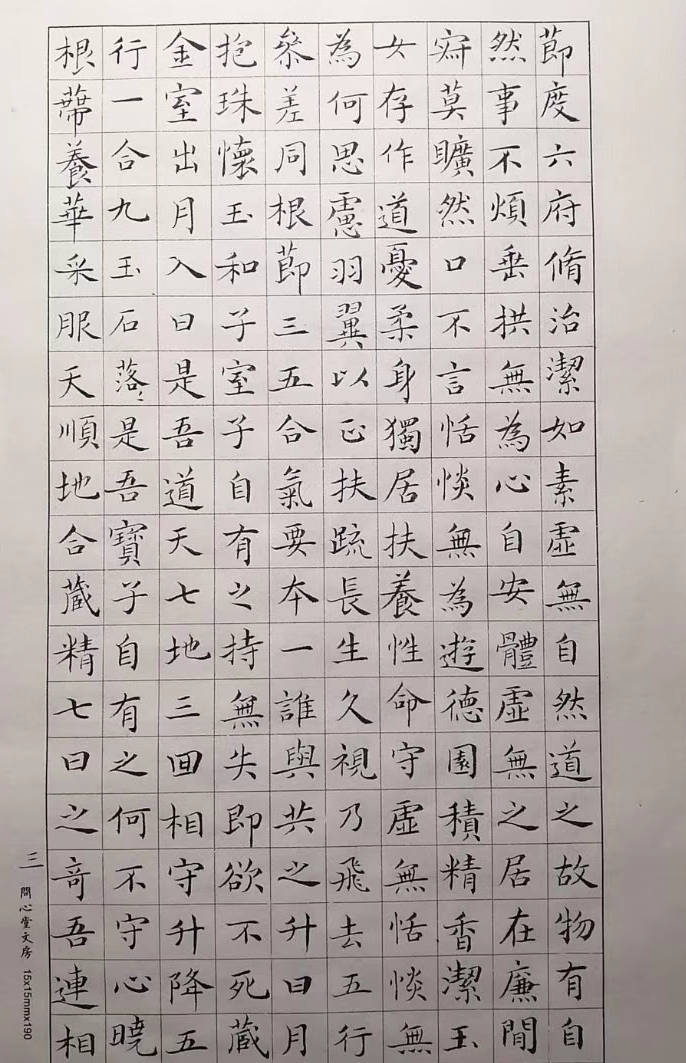 莭度六府脩治潔如素虛無自然道之故物有自
然事不煩垂拱無為心自安體虛無之居在廉間
寂莫曠然口不言恬惔無為遊德園積精香潔玉
女存作道憂柔身獨居扶養性命守虛無恬惔無
為何思慮羽翼以正扶疏長生久視乃飛去五行
叅差同根莭三五合氣要本一誰與共之升日月
抱珠懷玉和子室子自有之持無失即欲不死藏
金室出月入日是吾道天七地三回相守升降五
行一合九玉石落〻是吾寶子自有之何不守心曉
根蔕養華采服天順地合藏精七日之奇吾連相
三 問心堂文房 15x15mmx190